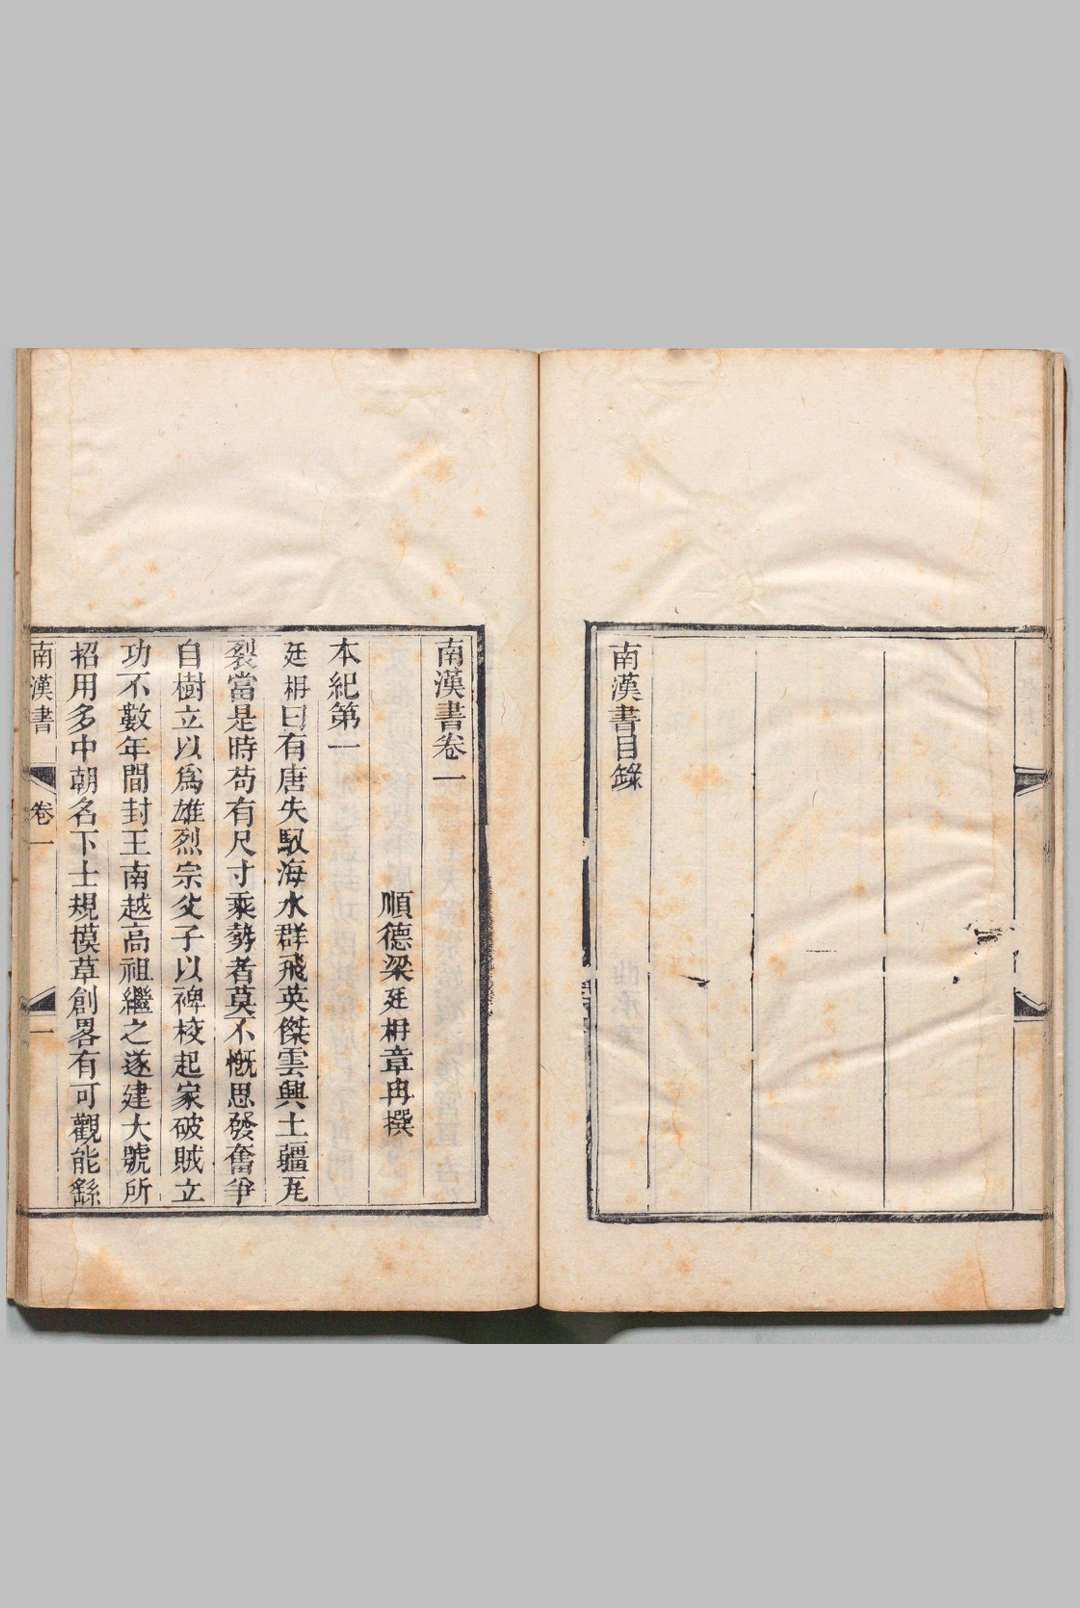 南漢書目錄
南漢書卷一
順德梁廷枏章冉撰
本紀第一
廷枏曰有唐失馭海水群飛英傑雲興土疆瓦
裂當是時苟有尺寸乘勢者莫不慨思發奮爭
自樹立以爲雄烈宗父子以裨校起家破賊立
功不數年間封王南越高祖繼之遂建大號所
招用多中朝名下士規模草創畧有可觀能繇
南漢書 卷一 一